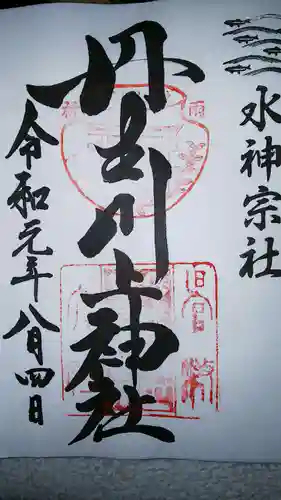 水神宗社
丹生川上神社
令和元年八月四日
雨
旧官